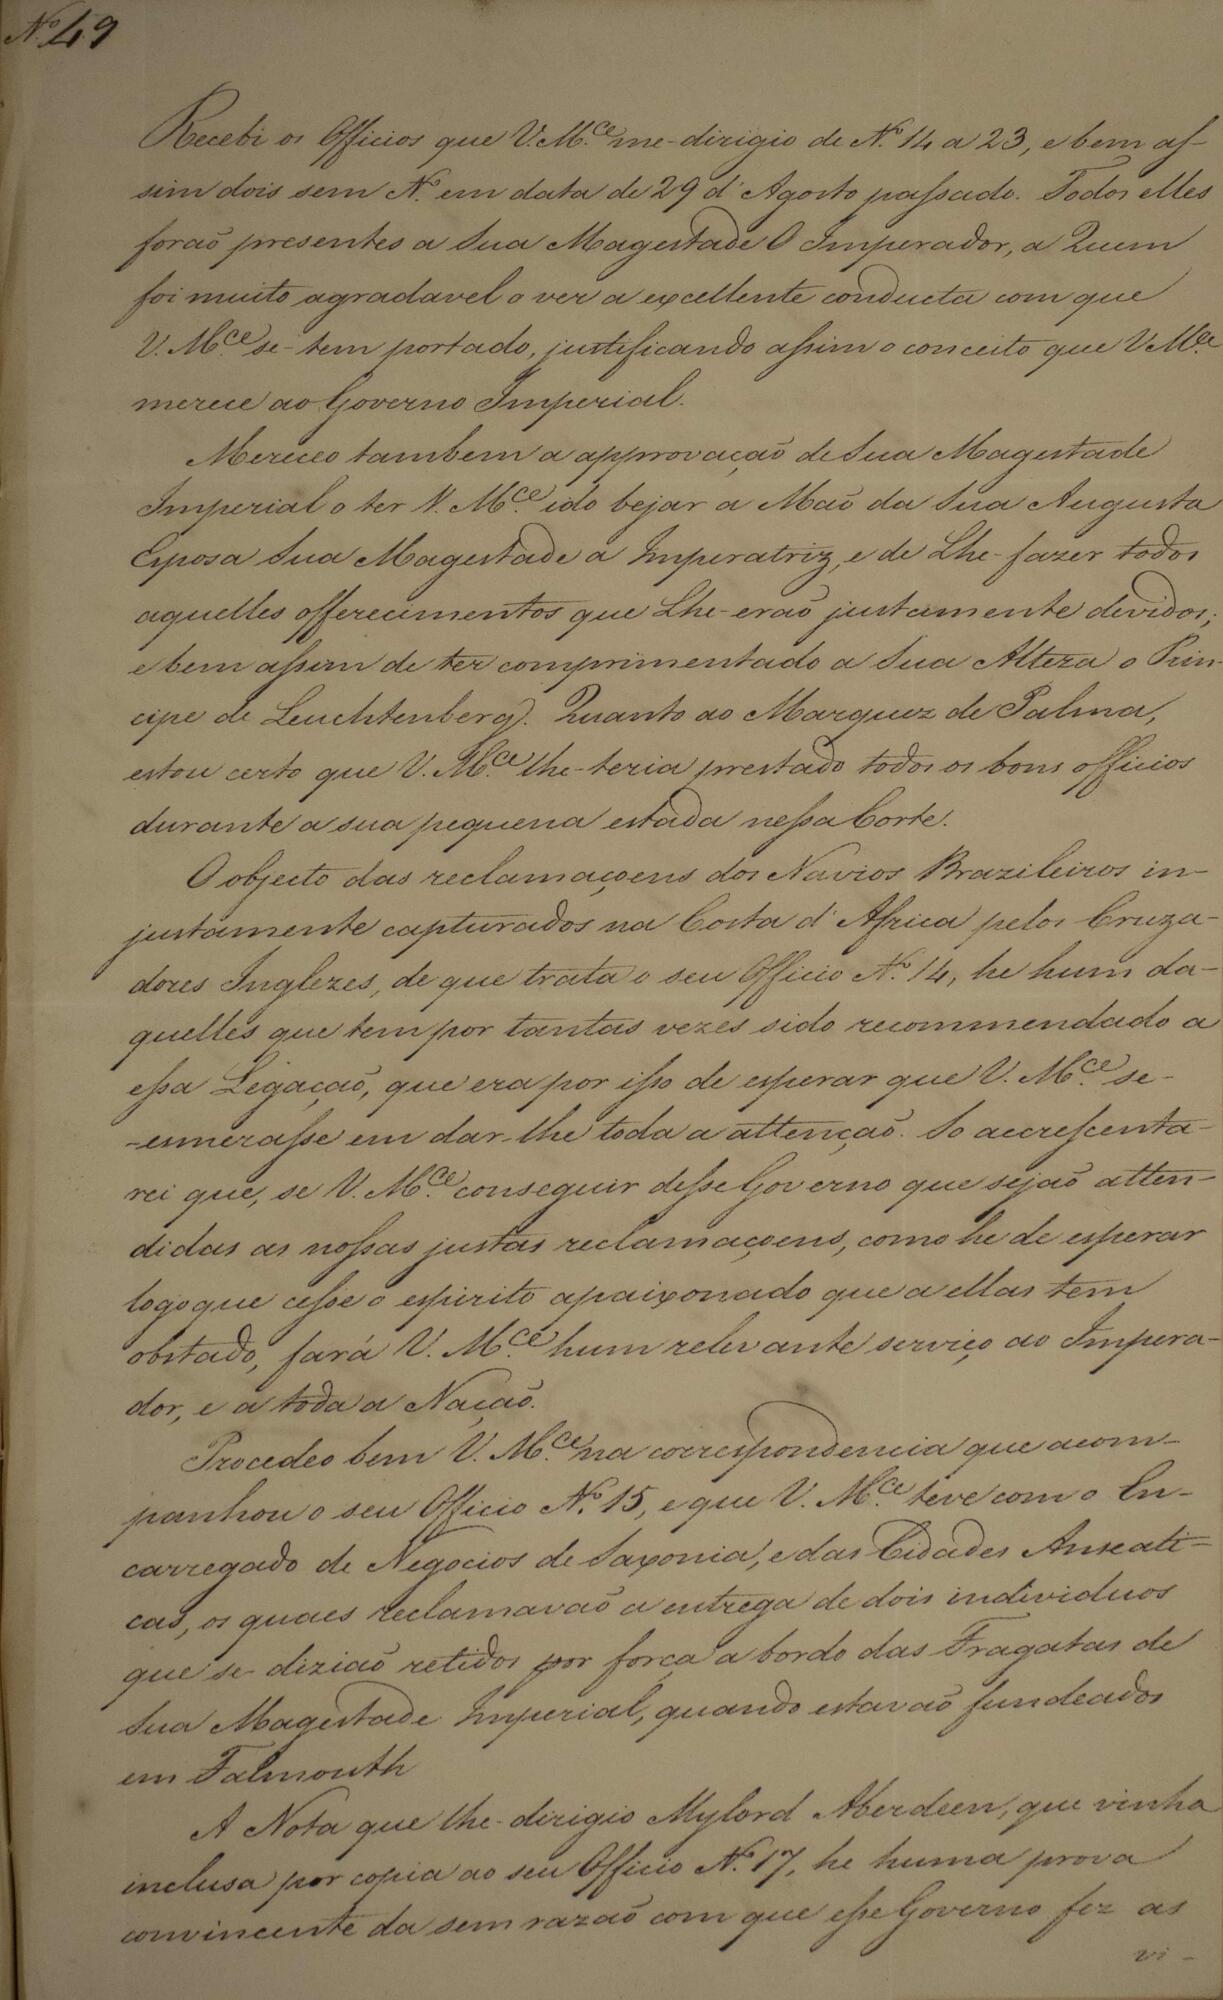 Nº 49
Recebi os Officios que V.M.ce me-dirigio de Nº 14 a 23, e bem as-
sim dois sem Nº em data de 29 d'Agosto passado. Todos elles
foraõ presentes a Sua Magestade O Imperador, a Quem
foi muito agradavel o ver a excellente conducta com que
V. M.ce se-tem portado, justificando assim o conceito que V M.ce
merece ao Governo Imperial.
Mereceo tambem a approvaçaõ de Sua Magestade
Imperial o ter V. M.ce ido bejar a Maõ da Sua Augusta
Esposa Sua Magestade a Imperatriz, e de Lhe-fazer todos
aquelles offerecimentos que Lhe-eraõ justamente devidos;
e bem assim de ter comprimentado a Sua Alteza o Prin-
cipe de Leuchtenberg. Quanto ao Marquez de Palma,
estou certo que V. M.ce lhe-teria prestado todos os bons officios
durante a sua pequena estada nessa Corte.
O objecto das reclamaçoens dos Navios Brazileiros in-
justamente capturados na Costa d'Africa pelos Cruza-
dores Inglezes, de que trata o seu Officio Nº 14, he hum da-
quelles que tem por tantas vezes sido recommendado a
essa Legaçaõ, que era por isso de esperar que V. M.ce se-
-esmerasse em dar-lhe toda a attençaõ. So accrescenta-
rei que, se V. M.ce conseguir desse Governo que sejaõ atten-
didas as nossas justas reclamaçoens, como he de esperar
logo que cesse o espirito apaixonado que a ellas tem
obstado, fará V. M.ce hum relevante serviço ao Impera-
dor, e a toda a Naçaõ.
Procedeo bem V. M.ce na correspondencia que acom-
panhou o seu Officio Nº 15, e que V. M.ce teve com o En-
carregado de Negocios de Saxonia, e das Cidades Anseati-
cas, os quaes reclamavaõ a entrega de dois individuos
que se-diziaõ retidos por força a bordo das Fragatas de
Sua Magestade Imperial, quando estavaõ fundeados
em Falmouth
A Nota que lhe-dirigio Mylord Aberdeen, que vinha
inclusa por copia ao seu Officio Nº 17, he huma prova
convincente da sem razaõ com que esse Governo fez as
vi-